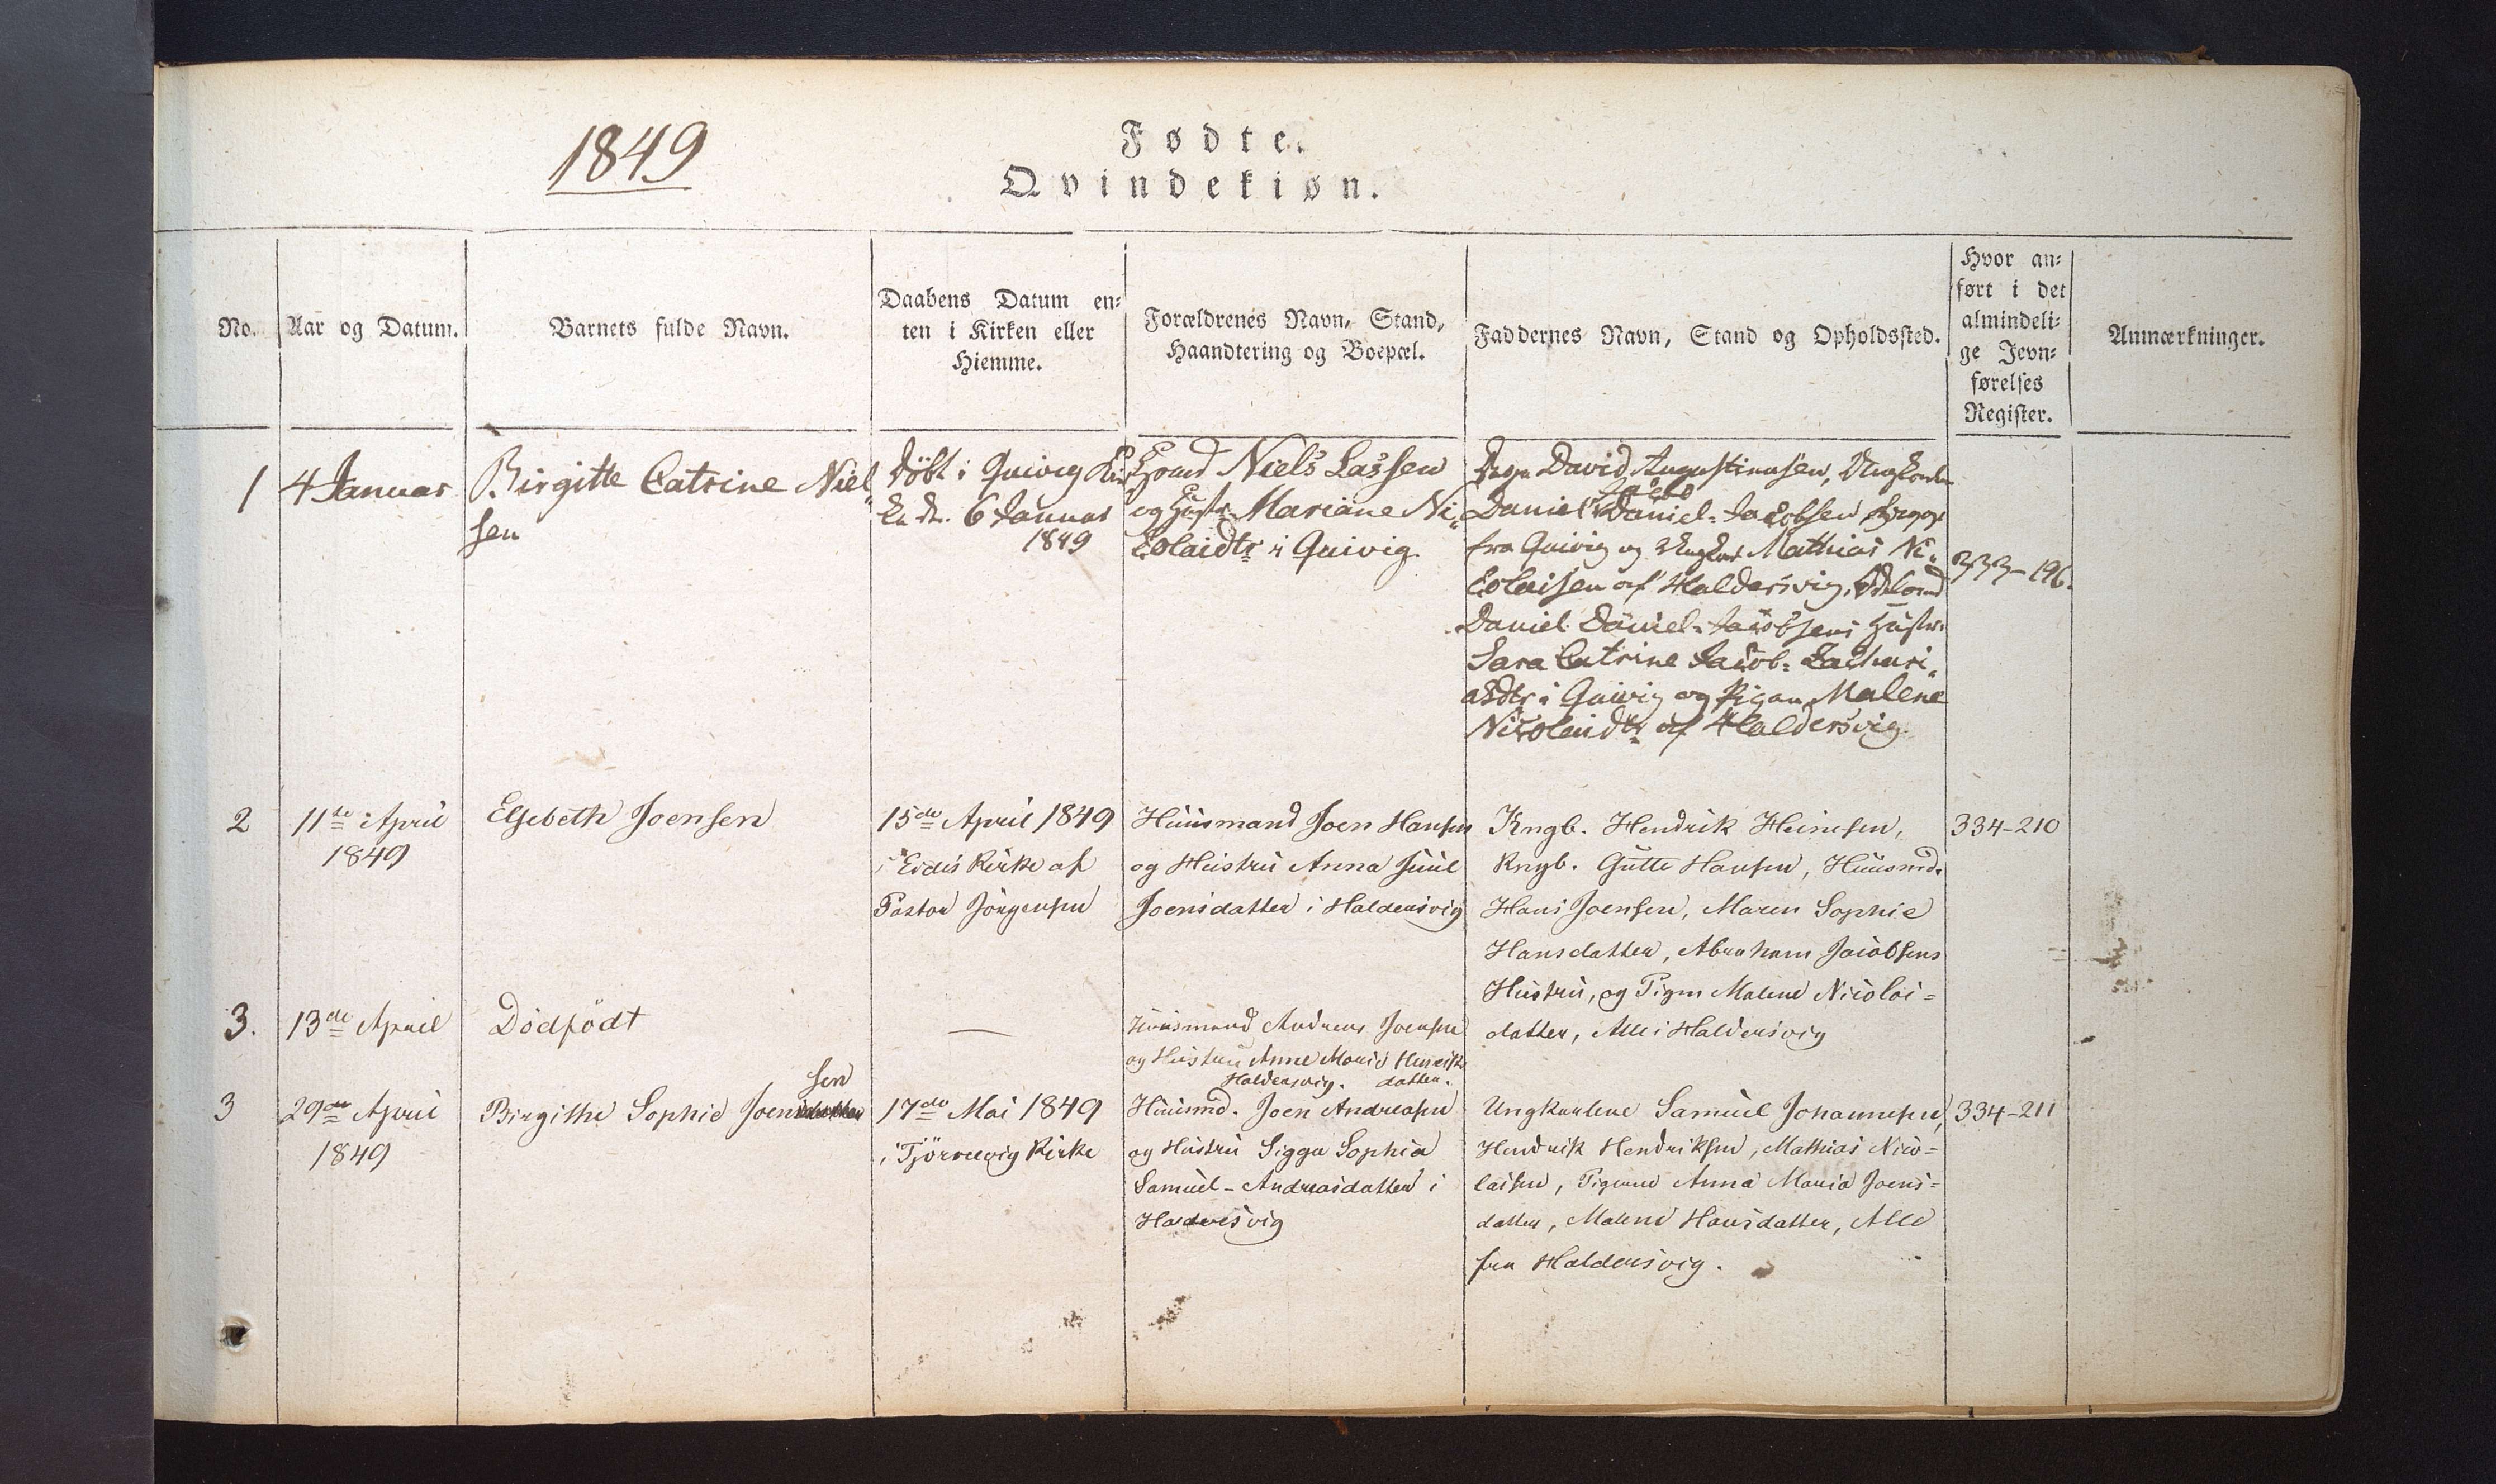 1849
Fødte.
Qvindekiøn.
No.
Aar og Datum.
Barnets fulde Navn.
Daabens Datum en-
ten i Kirken eller
Hiemme.
Forældrenes Navn, Stand,
Haandtering og Boepæl.
Faddernes Navn, Stand og Opholdssted.
Hvor an-
ført i det
almindeli-
ge Jevn-
førelses
Register.
Anmærkninger.
1
4 Januar
Birgitte Catrine Niel
sen
Döbt i Quivig Kir
6 Januar
1849
Niels Lassen
og Hustr. Mariane Ni-
colaidtr i Quivig
David Augustinusen,
Daniel Daniel-Jacobsen
fra Quivig og Mathias Ni-
colaisen af Haldersvig,
Daniel Daniel-Jacobsens Hustr.
Sara Catrine Jacob-Zachari-
asdtr i Quivig og Pigen Malene
Nicolaidtr af Haldersvig.
333-196.
2
11te April
1849
Elsebeth Joensen
15de April 1849
i Eidis Kirke af
Pastor Jörgensen
Huusmand Joen Hansen
og Hustru Anna Juul
Joensdatter i Haldersvig
Kngb. Hendrik Heinesen,
Kngb. Gutte Hansen, Huusmd.
Hans Joensen, Maren Sophie
Hansdatter, Abraham Jacobsens
Hustru, og Pigen Malene Nicolai=
datter, Alle i Haldersvig
334-210
3.
13de April
Dödfödt
—
Huusmand Andreas Joensen
og Hustru Anne Marie Henriks
Haldersvig. datter.
3
29de April
1849
sen
Birgithe Sophie Joensdatter
17de Mai 1849
i Tjörnevig Kirke
Huusmd. Joen Andreasen
og Hustru Sigga Sophia
Samuel-Andreasdatter i
Haldersvig
Ungkarlene Samuel Johannesen,
Hendrik Hendriksen, Mathias Nico=
laisen, Pigerne Anna Maria Joens=
datter, Malene Hansdatter, Alle
fra Haldersvig.
334-211